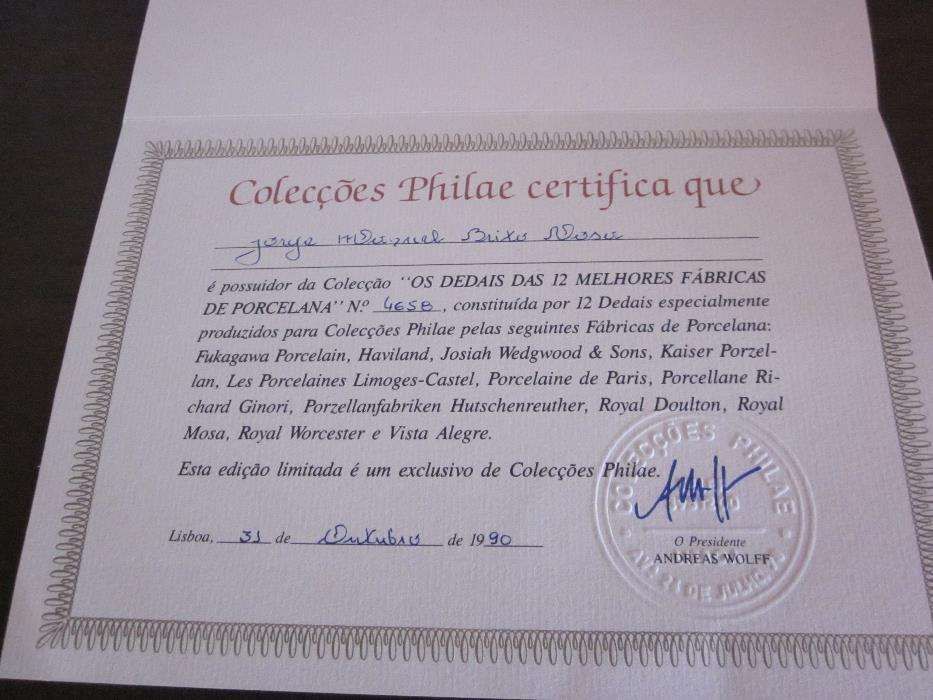 Colecções Philae certifica que
Jorge Manuel Brito
é possuidor da Colecção "OS DEDAIS DAS 12 MELHORES FÁBRICAS
DE PORCELANA" N.º 4658, constituída por 12 Dedais especialmente
produzidos para Colecções Philae pelas seguintes Fábricas de Porcelana:
Fukagawa Porcelain, Haviland, Josiah Wedgwood & Sons, Kaiser Porzel-
lan, Les Porcelaines Limoges-Castel, Porcelaine de Paris, Porcellane Ri-
chard Ginori, Porzellanfabriken Hutschenreuther, Royal Doulton, Royal
Mosa, Royal Worcester e Vista Alegre.
Esta edição limitada é um exclusivo de Colecções Philae.
COLECÇÕES PHILAE
Lisboa, 31 de Outubro de 1990
O Presidente
ANDREAS WOLFF